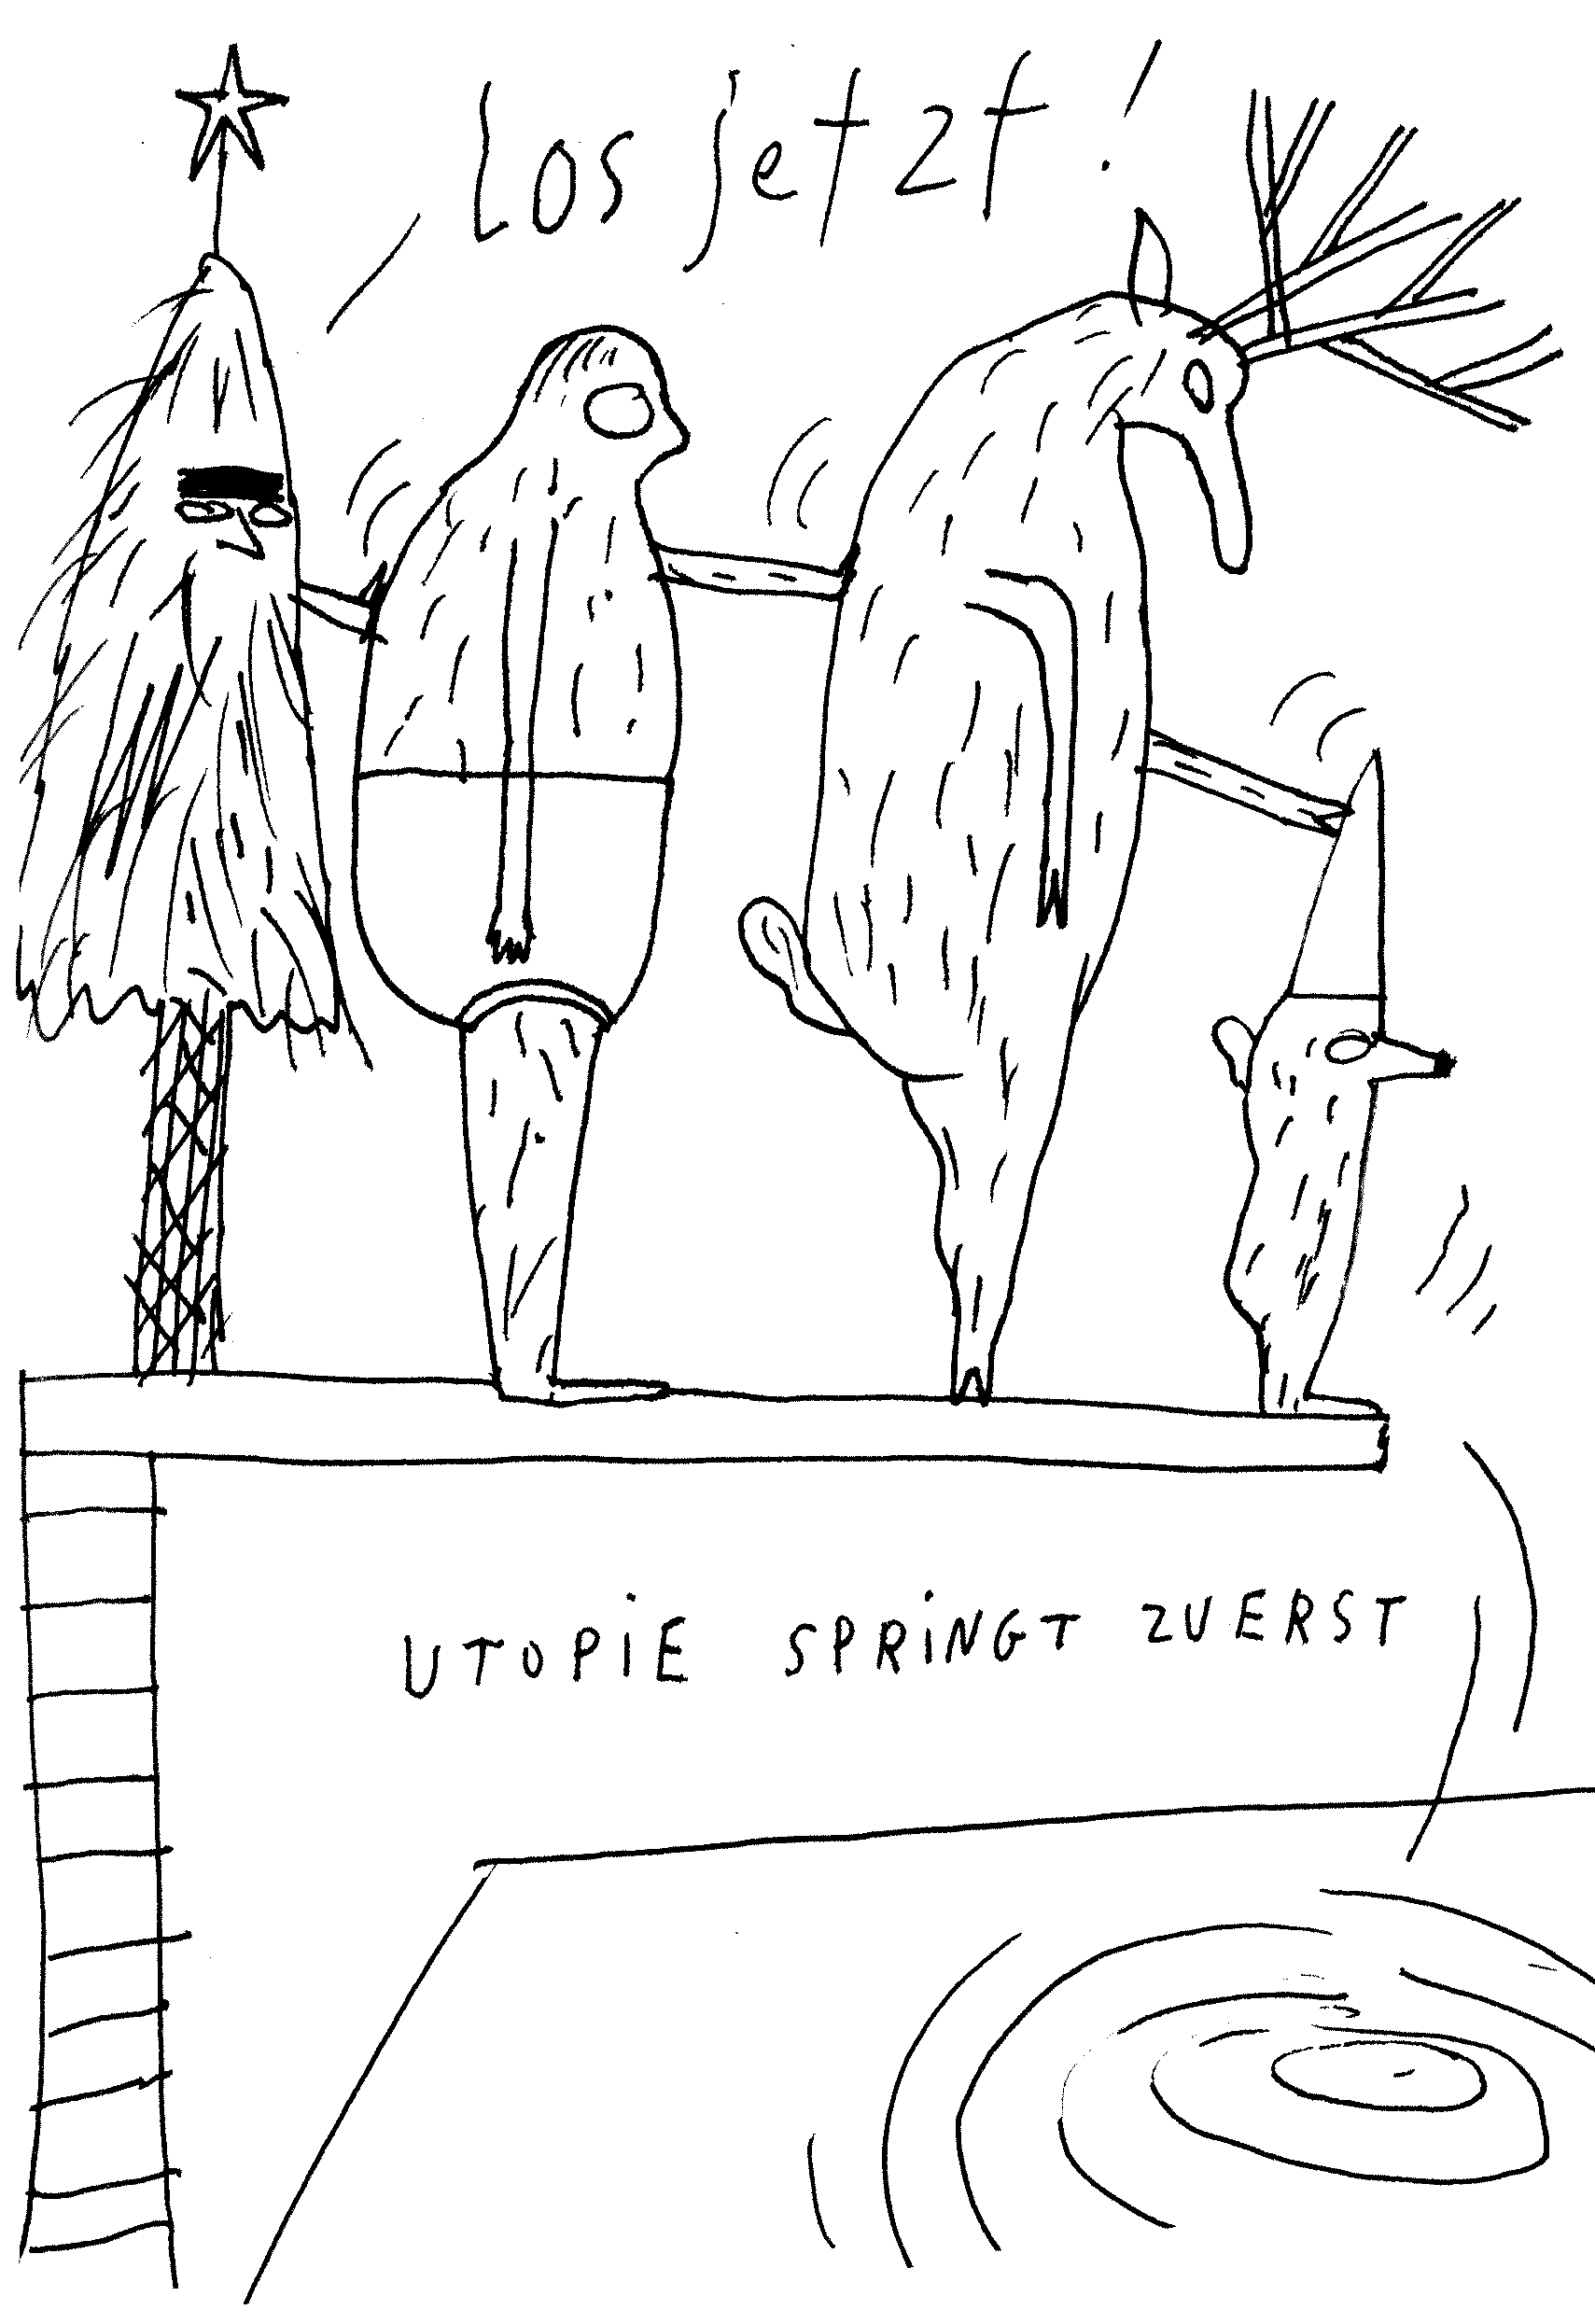 Los jetzt!
UTOPiE SPRiNGT ZUERST